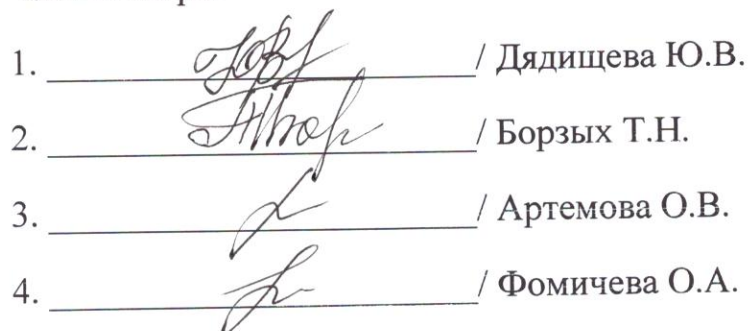 1. / Дядищева Ю.В.
2. / Борзых Т.Н.
3. / Артемова О.В.
4. / Фомичева О.А.